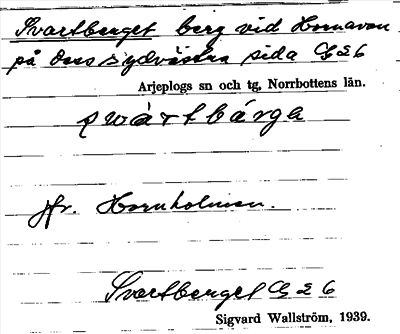 Svartberget berg vid Hornavan
på dess sydvästra sida G 26
Arjeplogs sn och tg, Norrbottens län.
swàrtbárga
Jfr. Hornholmen.
Svartberget G 26
Sigvard Wallström, 1939.